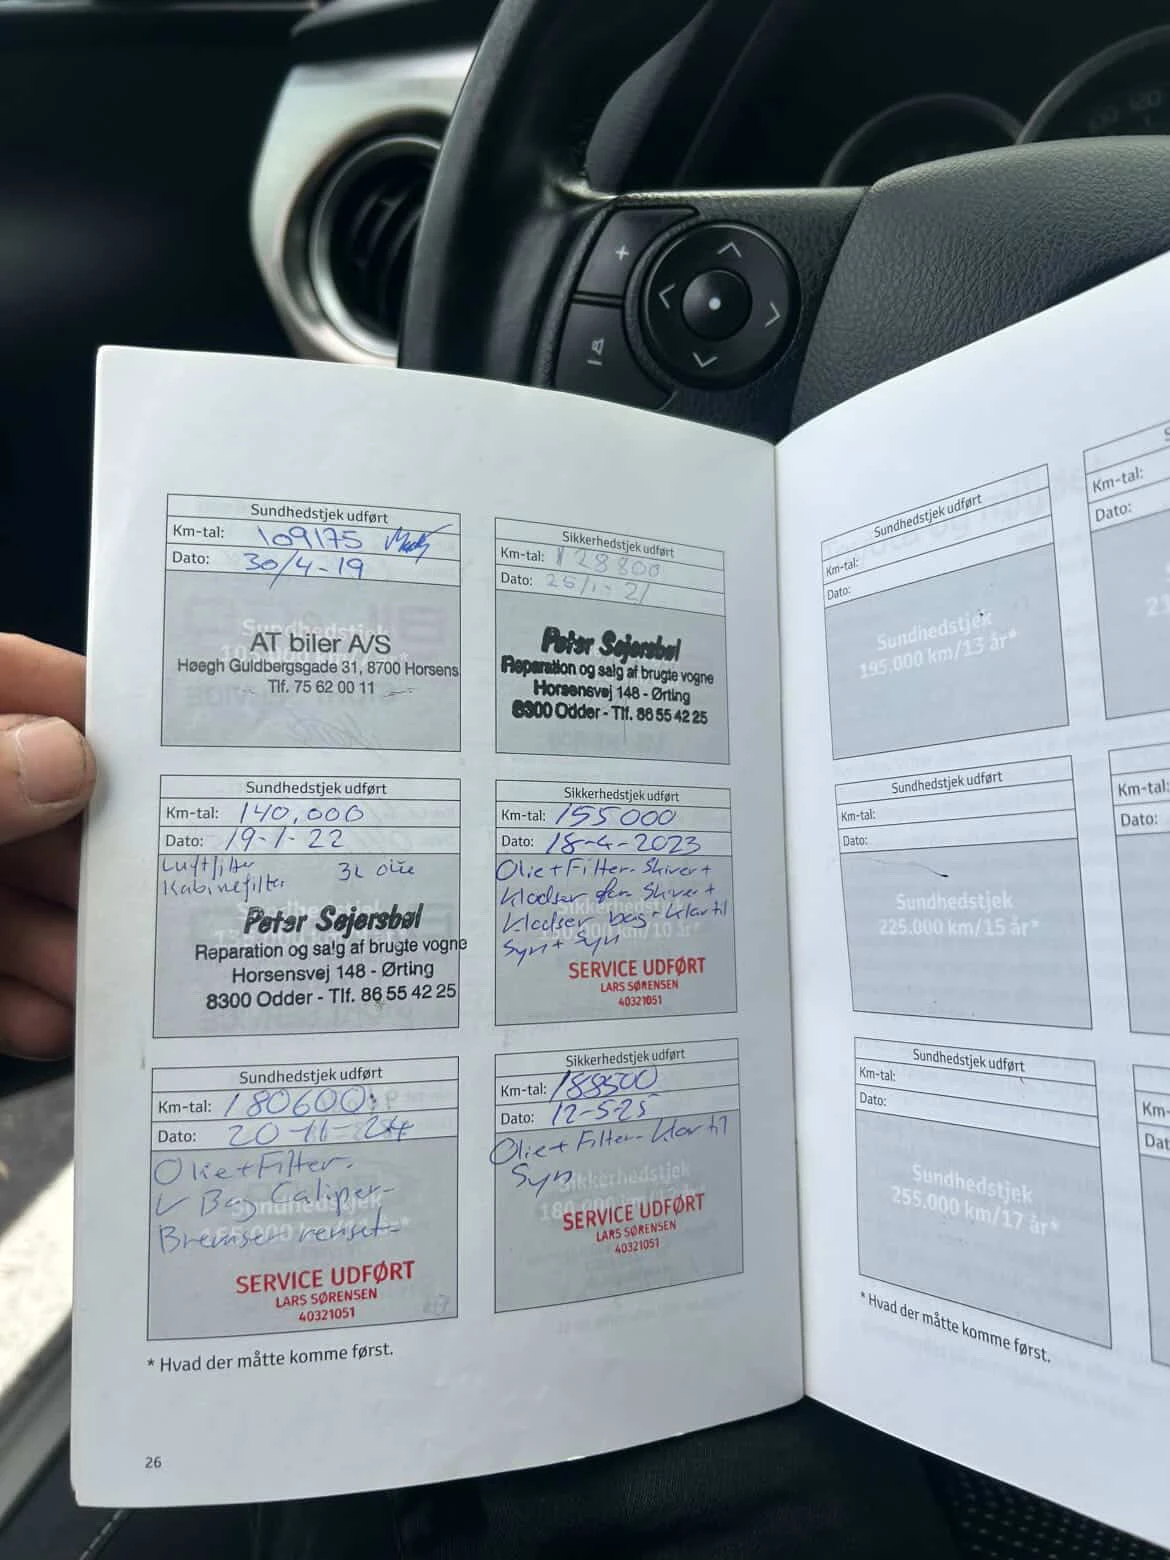 Sundhedstjek udført
Km-tal: 109175
Dato: 30/4-19
Sundhedstjek
AT biler A/S
Høegh Guldbergsgade 31, 8700 Horsens
Tlf. 75 62 00 11
Sikkerhedstjek udført
Km-tal: 128800
Dato: 25/1-21
Peter Sejersbøl
Reparation og salg af brugte vogne
Horsensvej 148 - Ørting
8300 Odder - Tlf. 86 55 42 25
Sundhedstjek udført
Km-tal: 140,000
Dato: 19-1-22
Luftfilter 3L olie
Kabinefilter
Peter Sejersbøl
Reparation og salg af brugte vogne
Horsensvej 148 - Ørting
8300 Odder - Tlf. 86 55 42 25
Sikkerhedstjek udført
Km-tal: 155000
Dato: 18-4-2023
Olie+Filter-Skiver+
Klodser for Skiver+
Klodser bag-Klar til
Syn+Syn
SERVICE UDFØRT
LARS SØRENSEN
40321051
Sundhedstjek udført
Km-tal: 180600
Dato: 20-11-24
Olie+Filter-
V Bag Caliper-
Bremser renset-
SERVICE UDFØRT
LARS SØRENSEN
40321051
Sikkerhedstjek udført
Km-tal: 188500
Dato: 12-5-25
Olie+Filter-Klar til
Syn
Sikkerhedstjek
SERVICE UDFØRT
LARS SØRENSEN
40321051
* Hvad der måtte komme først.
26
Sundhedstjek udført
Km-tal:
Dato:
Sundhedstjek
195.000 km/13 år*
Sundhedstjek udført
Km-tal:
Dato:
Sundhedstjek
225.000 km/15 år*
Sundhedstjek udført
Km-tal:
Dato:
Sundhedstjek
255.000 km/17 år*
* Hvad der måtte komme først.
Km-tal:
Dato:
Km-tal:
Dato: